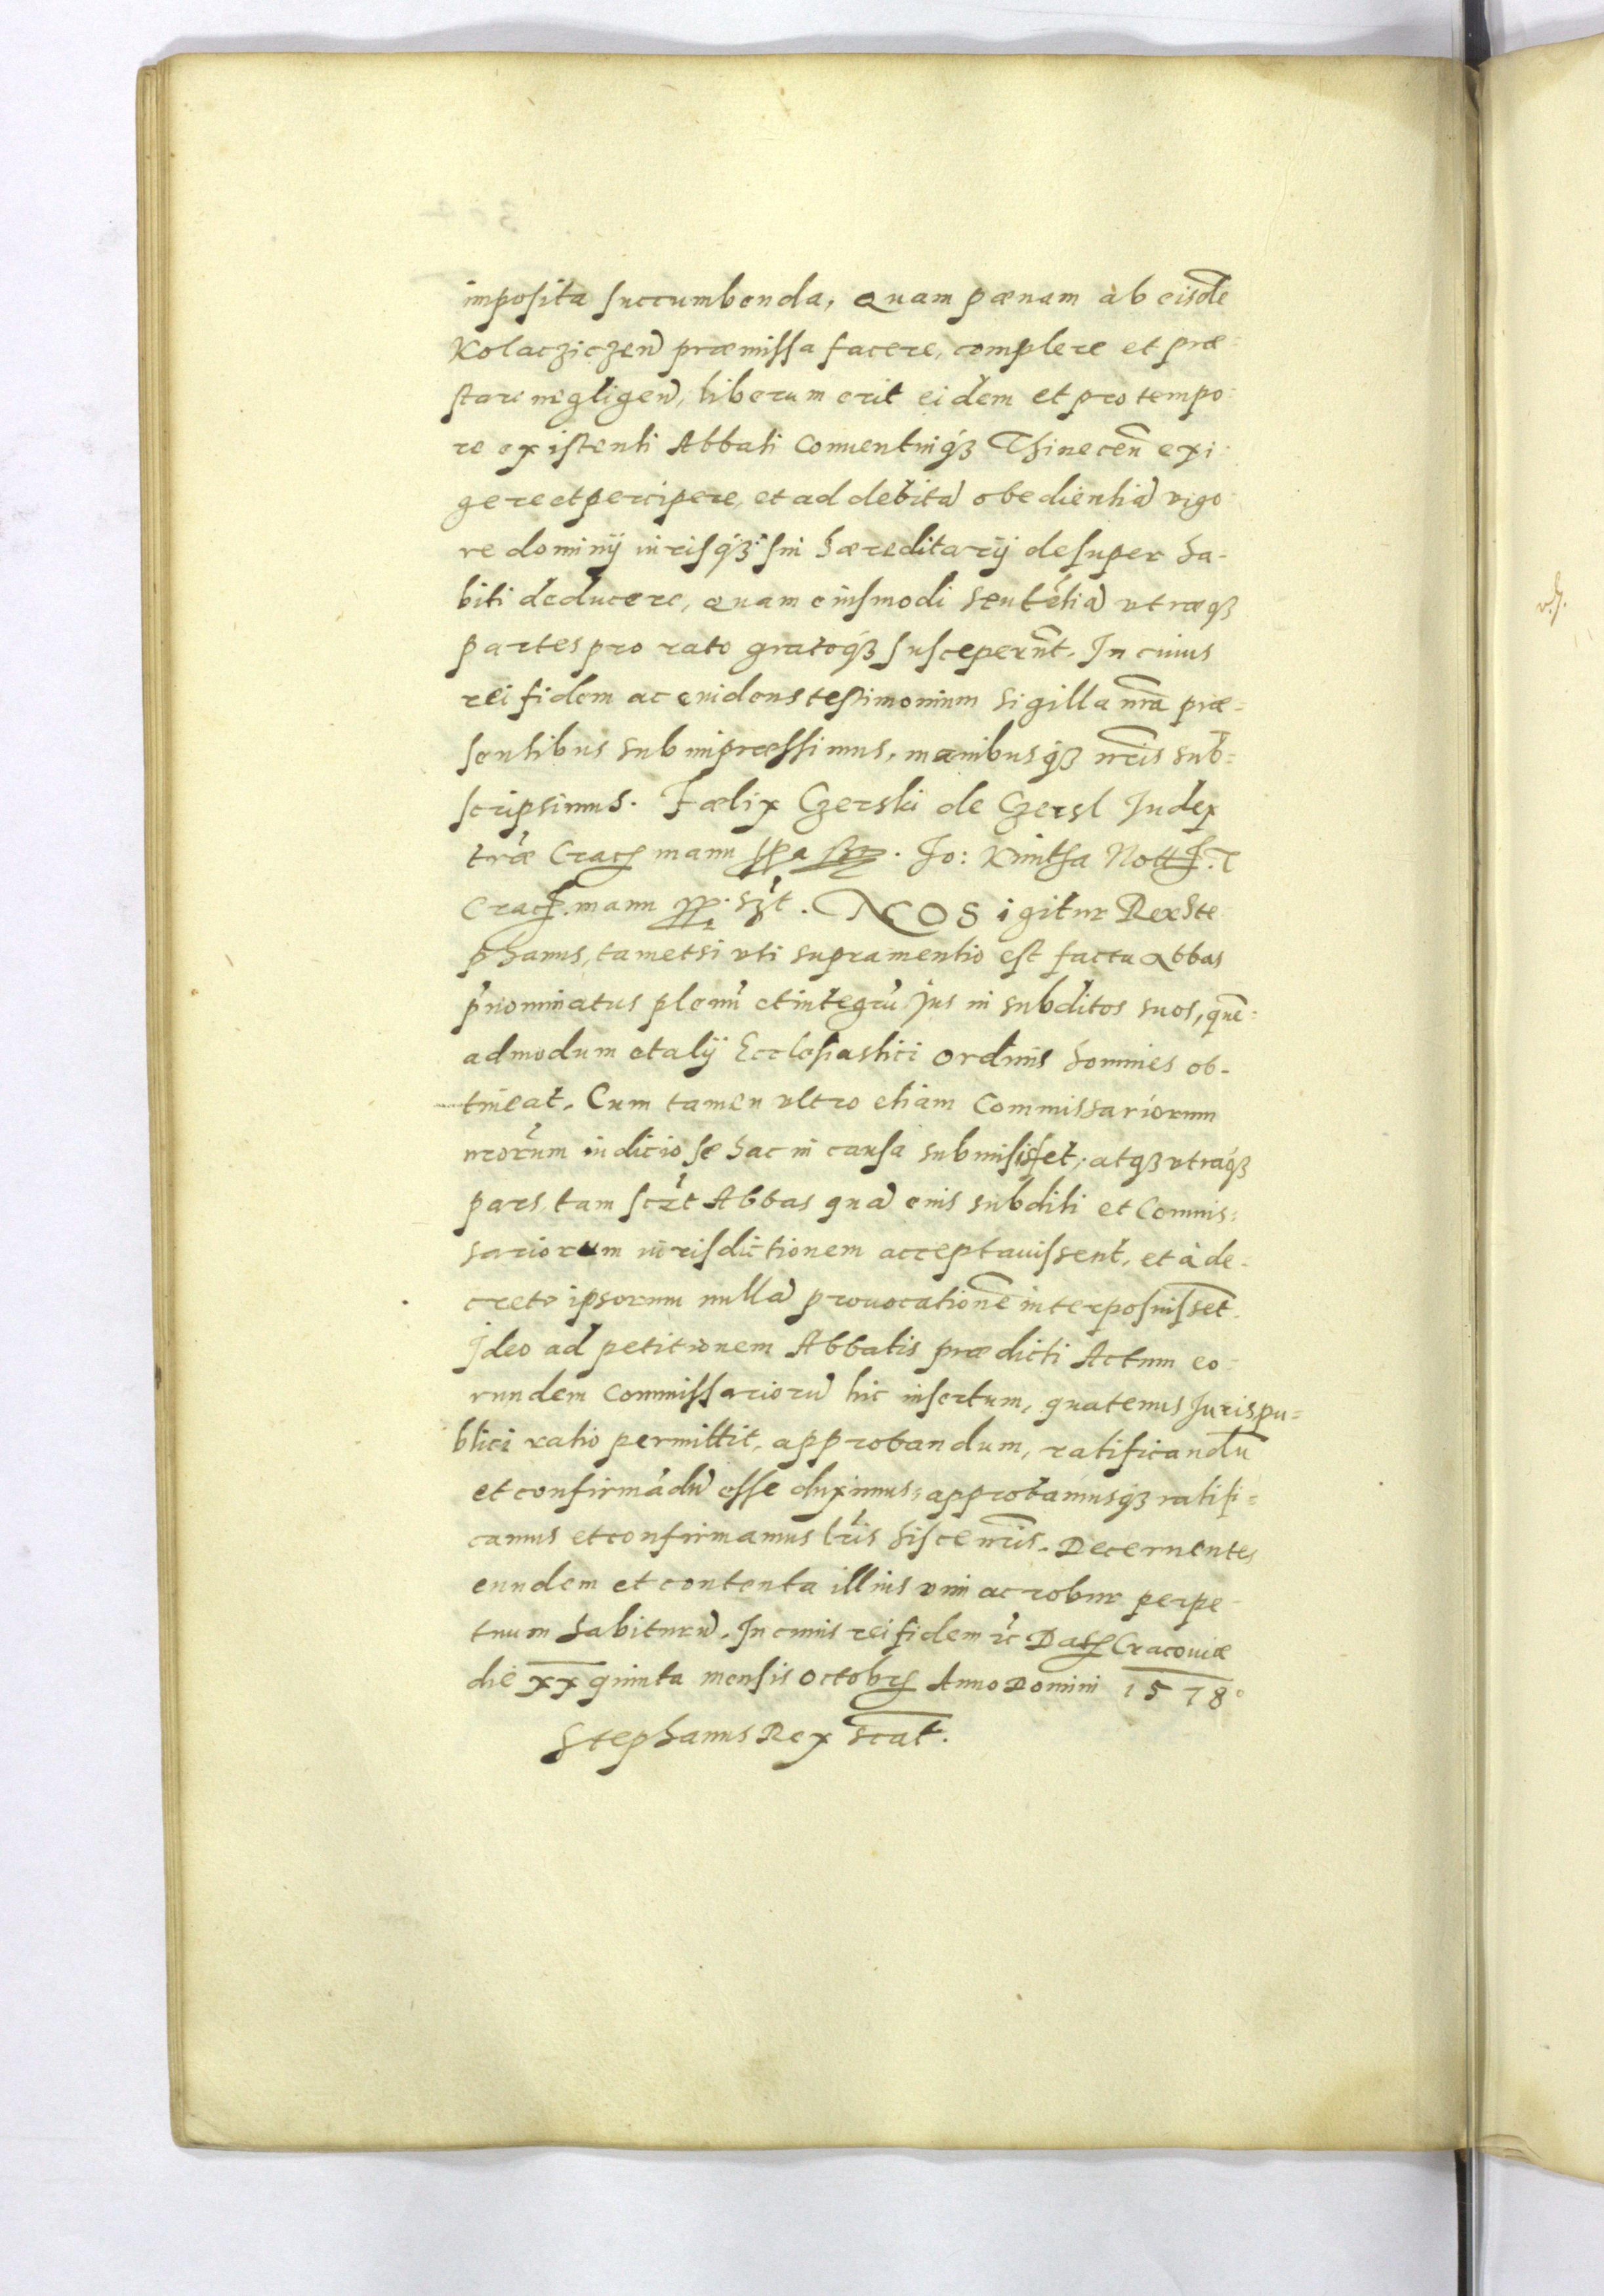 imposita succumbenda, Quam pœnam ab eisdē
Kolacziczeñ præmissa facere, complere et præ-
stare negligeñ, liberum erit eidem et pro tempo-
re existenti Abbati Conuentuiq́ꝫ Thineceñ exi-
gere et percipere, et ad debitā obedientiā vigo-
re dominij iurisq́ꝫ sui hæreditarij desuper ha-
biti deducere, Quam eiusmodi sentētiā vtræqꝫ
partes pro rato gratoq́ꝫ susceperūt. In cuius
rei fidem ac euidens testimonium sigilla nr̄a præ-
sentibus subimpressimus, manibusq́ꝫ nr̄is sub-
scripsimus. Fælix Czerski de Czersl Iudex
tr̄æ Crac̄ manu Jo: Kmitha Nott T
Crac̄ manu pp. szt. NOS igitur Rex Ste-
phanus, tametsi vti supra mentio est facta Abbas
p̄nominatus plenū et integrū Jus in subditos suos, quē-
admodum et alij Ecclesiastici ordinis homines ob-
tineat. Cum tamen vltro etiam Commissariorum
nr̄orum iudicio se hac in causa submisisset, atqꝫ vtraq́ꝫ
pars, tam scz̄t Abbas quā eius subditi et Commis-
sariorum iurisdictionem acceptauissent, et à de-
creto ipsorum nullā prouocationē interposuissēt.
Ideo ad petitionem Abbatis prædicti Actum eo-
rundem Commissariorū hic insertum, quatenus Juris pu-
blici ratio permittit, approbandum, ratificandū
et confirmādū esse duximus, approbamusq́ꝫ ratifi-
camus et confirmamus lr̄is hisce nr̄is. Decernentes
eundem et contenta illius vim ac robur perpe-
tuum habiturū. In cuius rei fidem r̄c Dat̄ Cracouiæ
die xx quinta mensis Octobr̄ Anno Domini 1578°
Stephanus Rex scat.